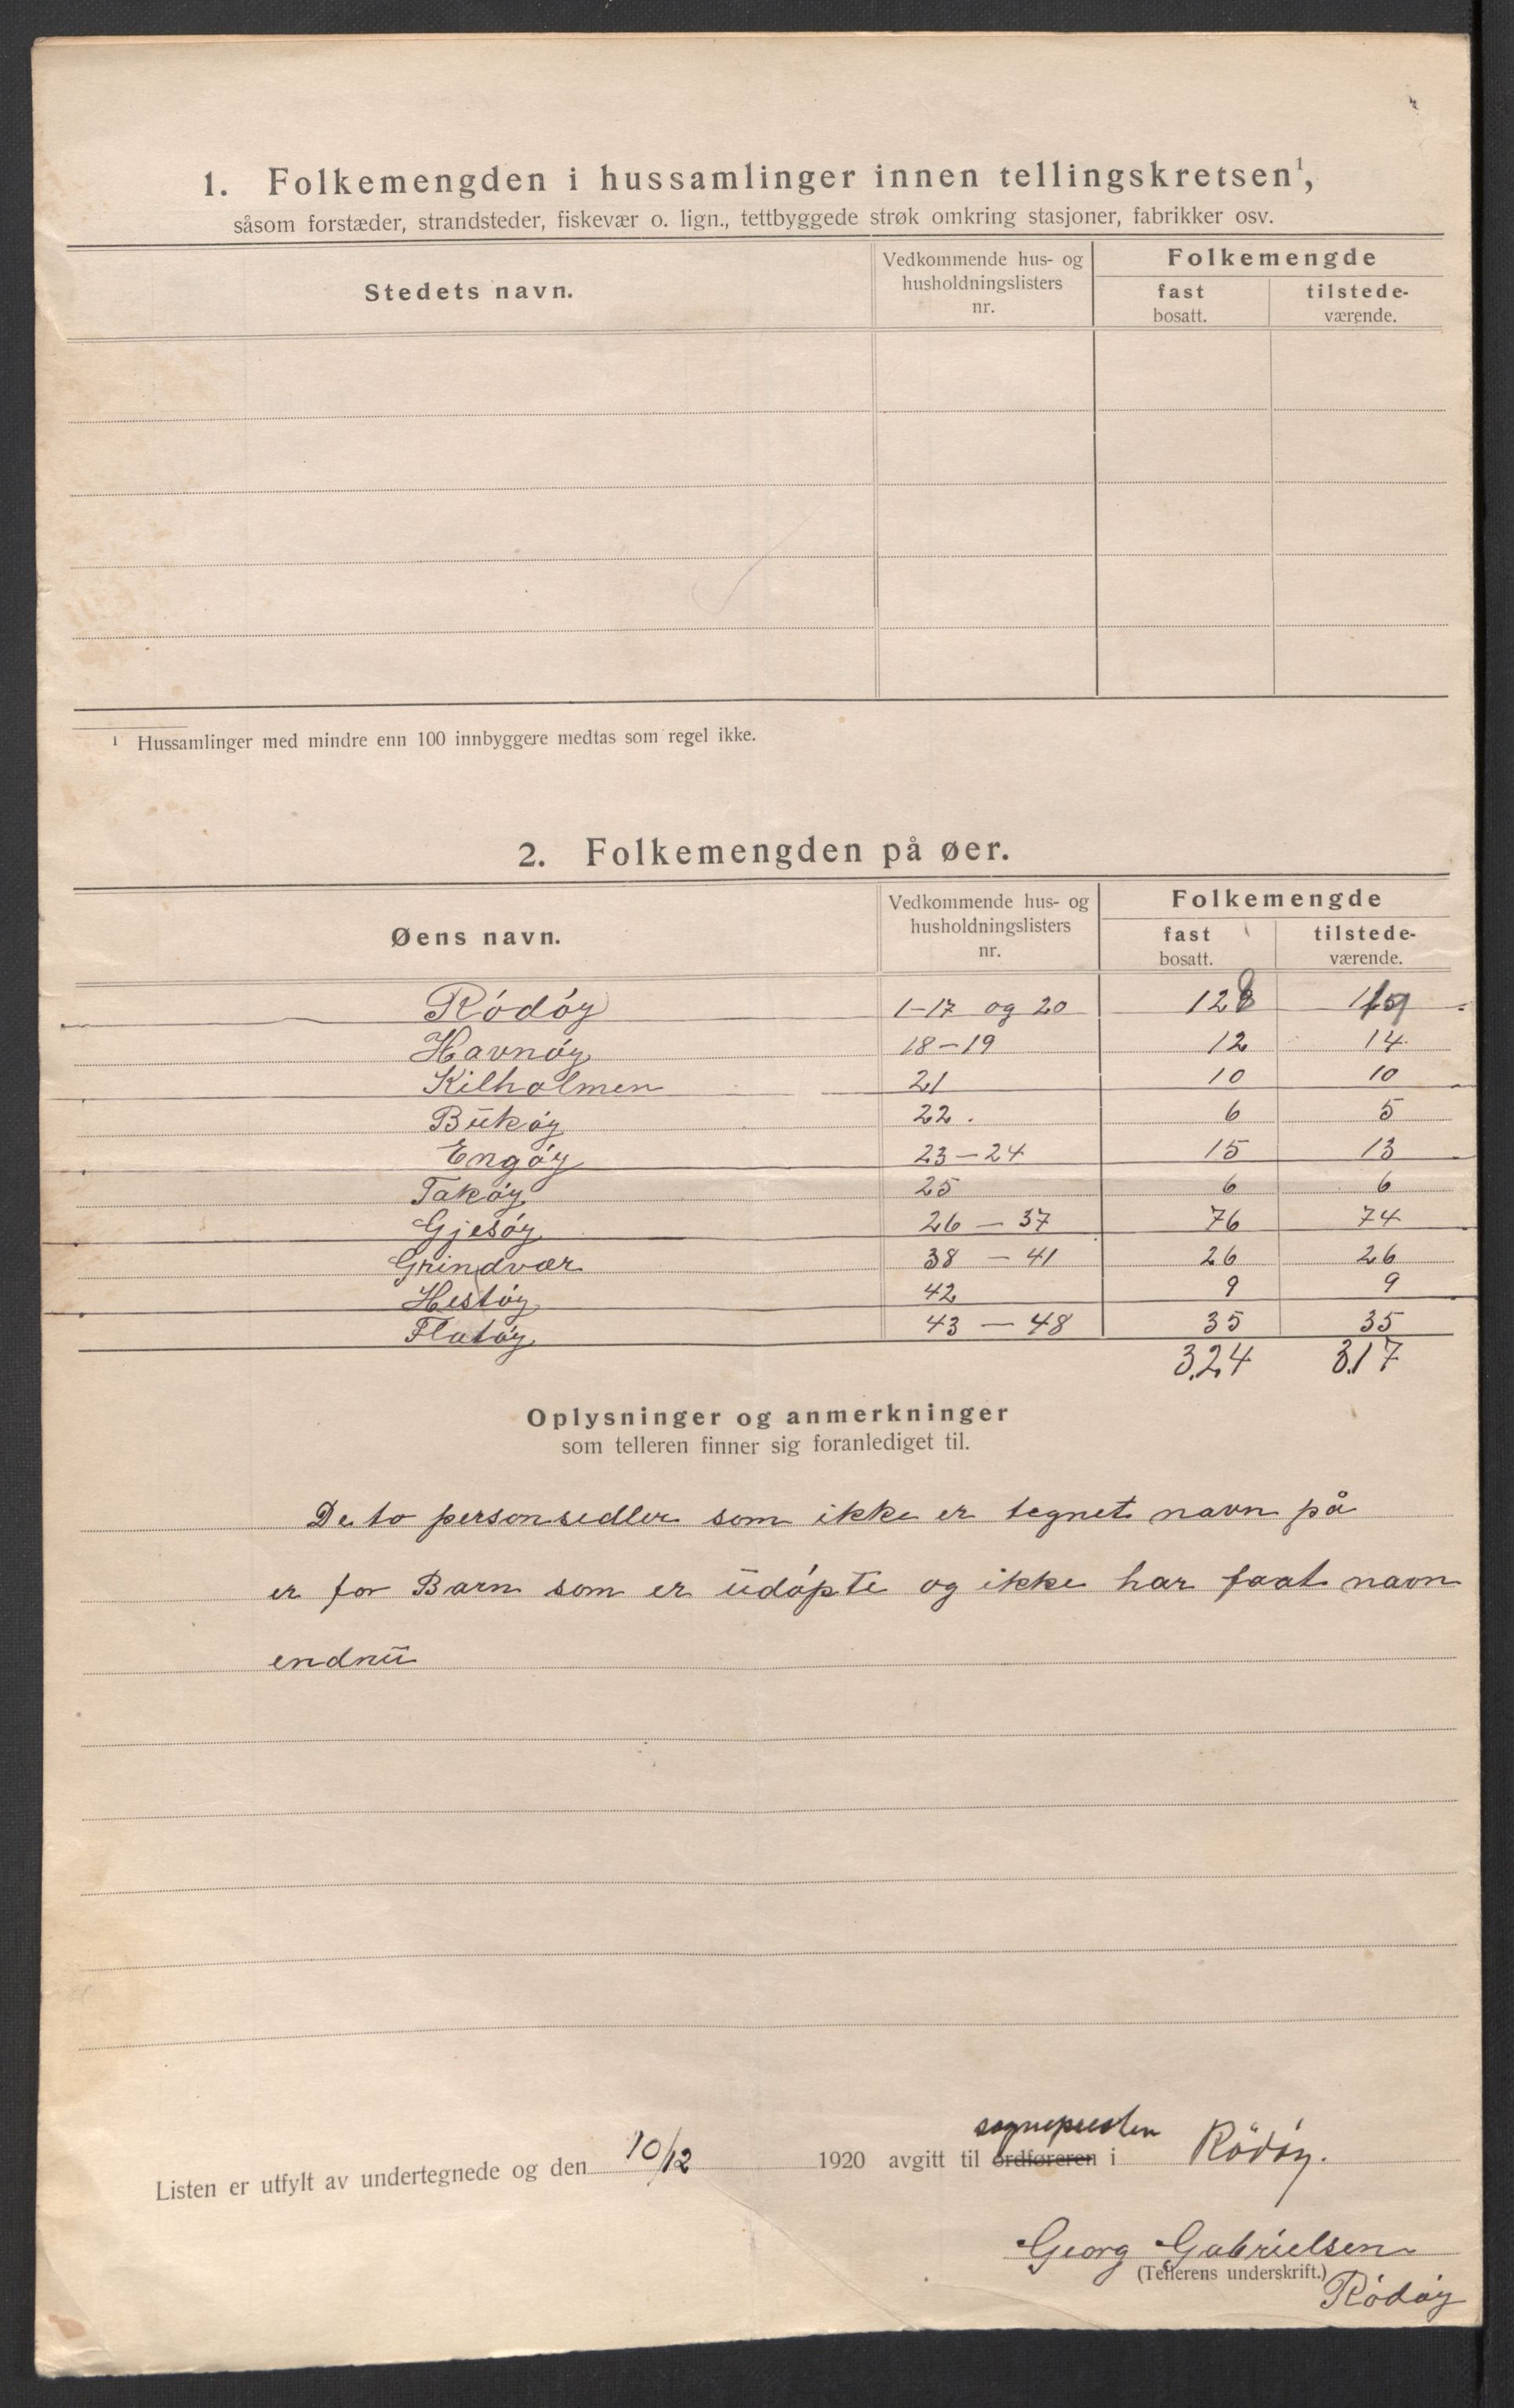 1. Folkemengden i hussamlinger innen tellingskretsen¹,
såsom forstæder, strandsteder, fiskevær o. lign., tettbyggede strøk omkring stasjoner, fabrikker osv.
Stedets navn.
Vedkommende hus- og
husholdningslisters
nr.
Folkemengde
fast
bosatt.
tilstede-
værende.
¹ Hussamlinger med mindre enn 100 innbyggere medtas som regel ikke.
2. Folkemengden på øer.
Øens navn.
Vedkommende hus- og
husholdningslisters
nr.
Folkemengde
fast
bosatt.
tilstede-
værende.
Ródóy 1-17 og 20 128
Havnóy 18-19 12 14
Kilholmen 21 10 10
Bükóy 22. 6 5
Engóy 23-24 15 13
Takóy 25 6 6
Gjesóy 26 - 37 76 74
Grindvær 38 - 41 26 26
Hestóy 42 9 9
Flatóy 43 - 48 35 35
324 317
Oplysninger og anmerkninger
som telleren finner sig foranlediget til.
De to personsedler som ikke er tegnet navn på
er for Barn som er üdópte og ikke har faat navn
endnü
Listen er utfylt av undertegnede og den 10/12 1920 avgitt til ordføreren sognepresten i Rödöy.
Georg Gabrielsen
(Tellerens underskrift.)
Ródóy